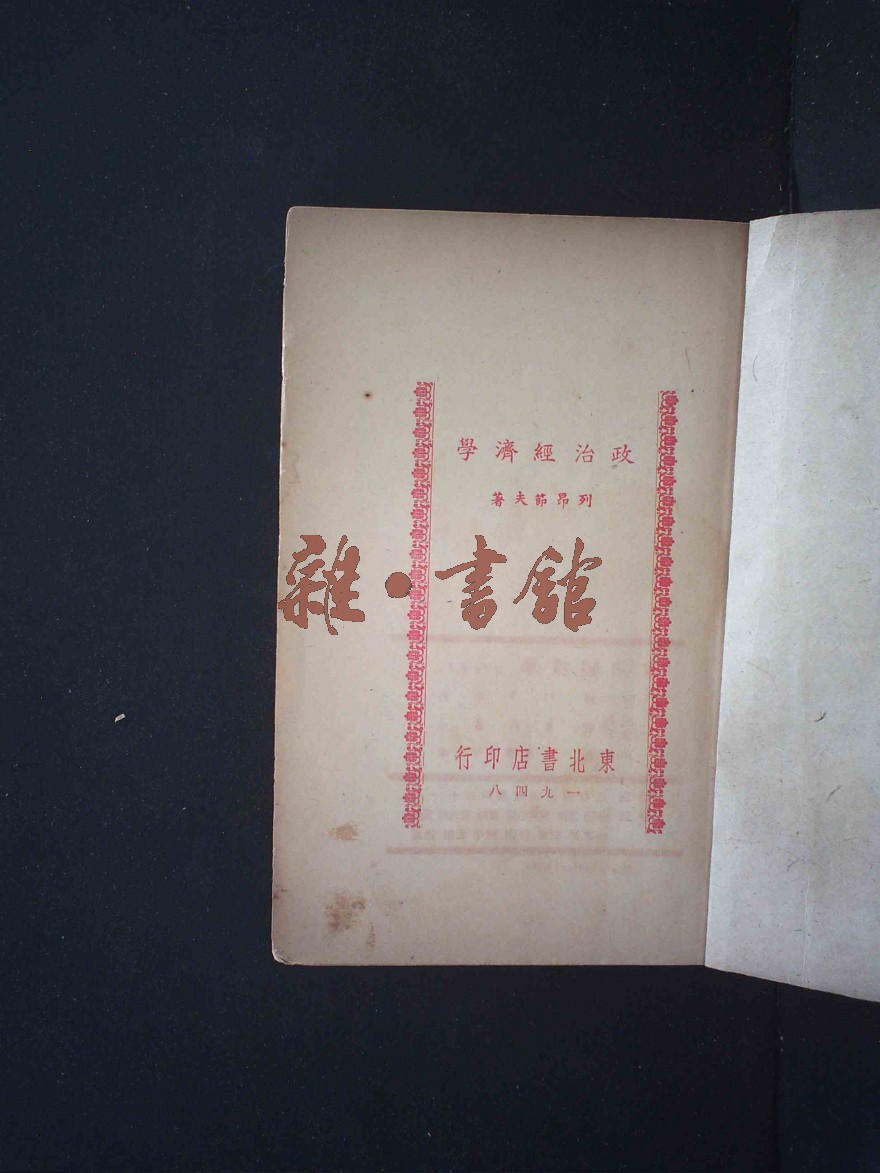 政治經濟學
列昂節夫著
雜·書館
東北書店印行
一九四八